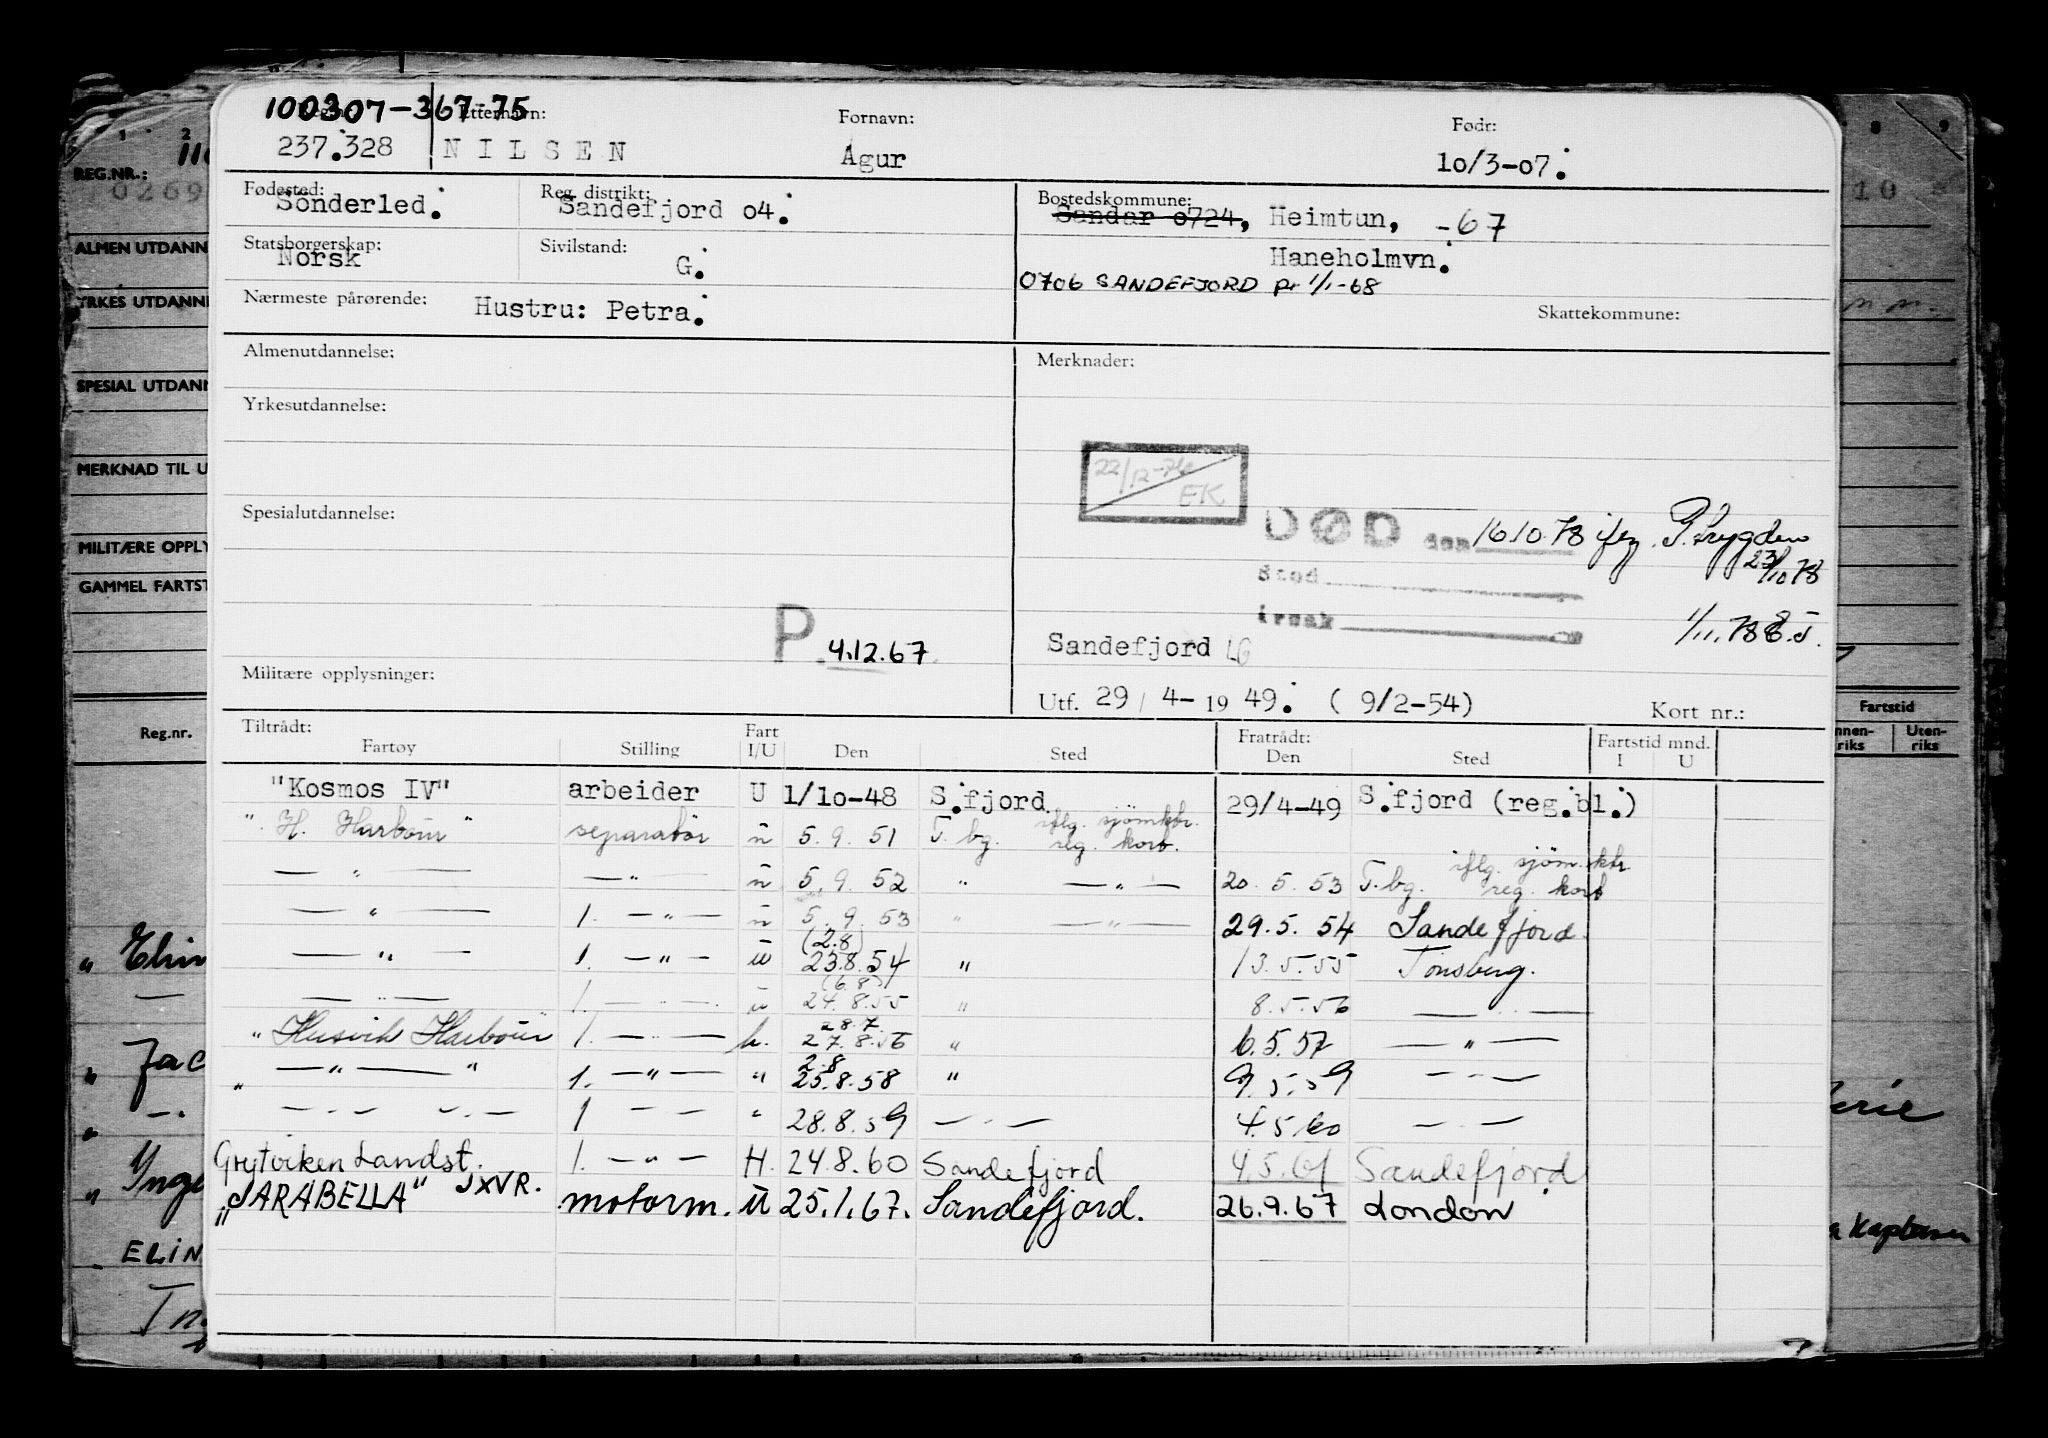 100307-367-75
Etternavn: Fornavn: Født:
237.328 NILSEN Agur 10/3-07.
Fødested: Sönderled. Reg. distrikt: Sandefjord o4. Bostedskommune: Sandar o724, Heimtun, -67
Statsborgerskap: Norsk Sivilstand: G. Haneholmvn.
0706 SANDEFJORD pr 1/1-68
Nærmeste pårørende: Hustru: Petra. Skattekommune:
Almenutdannelse: Merknader:
Yrkesutdannelse:
22/12-76 EK
Spesialutdannelse:
DØD den 16.10.78 ifg. P. trygden 23/10 78
Sted
Årsak
1/11.78
P. 4.12.67. Sandefjord LG
Militære opplysninger: Utf. 29/4-1949. (9/2-54) Kort nr.:
Tiltrådt: Fratrådt: Fartstid mnd.
Fartøy Stilling Fart I/U Den Sted Den Sted I U
"Kosmos IV" arbeider U 1/10-48 S.fjord 29/4-49 S.fjord (reg.bl.)
" H. Harbour " separatør u 5.9.51 T.bg. iflg. sjømktr. reg. kort.
— " — — " — u 5.9.52 " — " — 20.5.53 T.bg. iflg. sjøm.ktr reg. kort
— " — 1. — " — u 5.9.53 " — " — 29.5.54 Sandefjord
— " — 1. — " — u (2.8) 23.8.54 " 13.5.55 Tønsberg.
— " — 1. — " — u (6.8) 24.8.55 " 8.5.56 — " —
" Husvik Harbour " 1. — " — h. 28.7. 27.8.56 " 6.5.57 — " —
" — " — " 1. — " — " 2.8 25.8.58 " 9.5.59 — " —
— " — — " — 1 — — " 28.8.59 — " — 4.5.60 — " —
Grytviken Landst. 1. — " — H. 24.8.60 Sandefjord 4.5.61 Sandefjord
"SARABELLA" JXVR. motorm. u 25.1.67. Sandefjord. 26.9.67 London
REG.NR.:
0269
10
ALMEN UTDANN
YRKES UTDANN
SPESIAL UTDANN
MERKNAD TIL U
MILITÆRE OPPLY
GAMMEL FARTST
Reg.nr.
Fartstid
nnen-riks Uten-riks
" Elin
" Jac
" Inge
ELIN